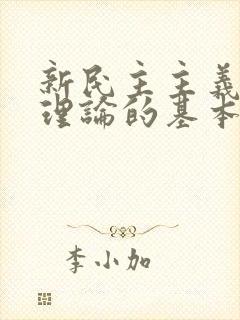 新民主主義
理論的基本
李小加